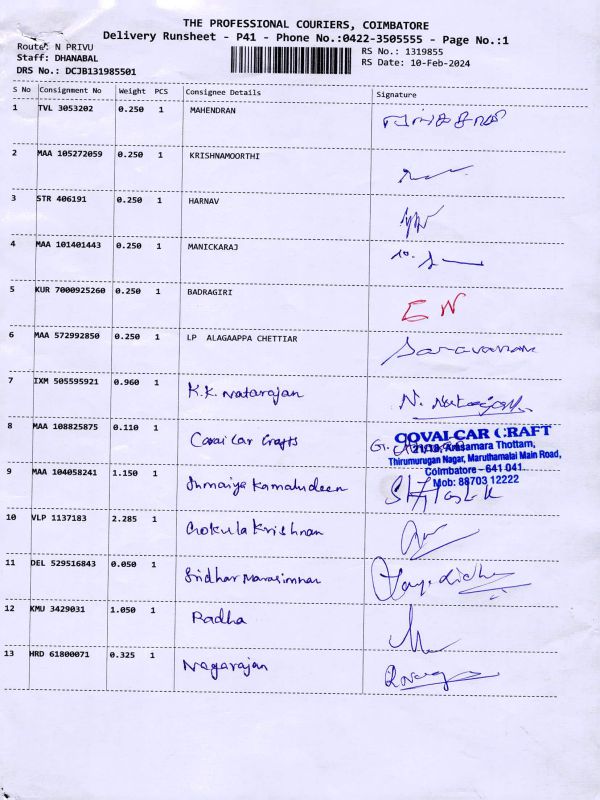 THE PROFESSIONAL COURIERS, COIMBATORE
Delivery Runsheet - P41 - Phone No.:0422-3505555 - Page No.:1
Route: N PRIVU
Staff: DHANABAL
DRS No.: DCJB131985501
RS No.: 1319855
RS Date: 10-Feb-2024
S No Consignment No Weight PCS Consignee Details Signature
1 TVL 3053202 0.250 1 MAHENDRAN
2 MAA 105272059 0.250 1 KRISHNAMOORTHI
3 STR 406191 0.250 1 HARNAV
4 MAA 101401443 0.250 1 MANICKARAJ
5 KUR 7000925260 0.250 1 BADRAGIRI EN
6 MAA 572992850 0.250 1 LP ALAGAAPPA CHETTIAR Saravanan
7 IXM 505595921 0.960 1 K.K. Natarajan N. Natarajan
8 MAA 108825875 0.110 1 Covai Car Crafts
COVAI CAR CRAFT
21/19, Arasamara Thottam,
Thirumurugan Nagar, Maruthamalai Main Road,
Coimbatore - 641 041
Mob: 88703 12222
9 MAA 104058241 1.150 1 Kamaludeen
10 VLP 1137183 2.285 1 Gokula Krishnan
11 DEL 529516843 0.050 1 Sridhar Narasimhan
12 KMU 3429031 1.050 1 Radha
13 HRD 61800071 0.325 1 Nagarajan